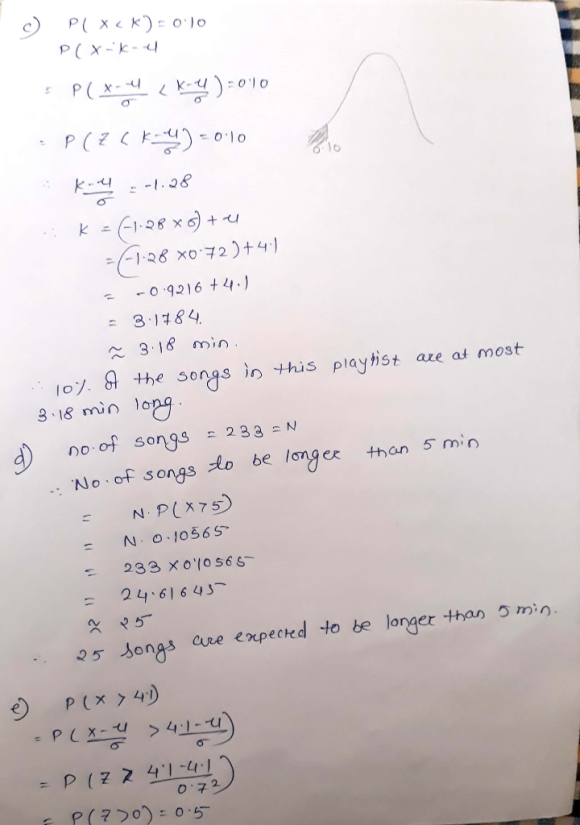 c) P( X < K) = 0.10
P( X - K - μ
= P( X-μ/σ < K-μ/σ ) = 0.10
= P ( Z < K-μ/σ ) = 0.10
0.10
∴ K-μ/σ = -1.28
∴ K = (-1.28 × σ) + μ
= (-1.28 × 0.72) + 4.1
= -0.9216 + 4.1
= 3.1784.
≈ 3.18 min.
∴ 10% of the songs in this playlist are at most
3.18 min long.
d) no. of songs = 233 = N
∴ No. of songs to be longer than 5 min
= N. P(X>5)
= N. 0.10565
= 233 × 0.10565
= 24.61645
≈ 25
∴ 25 songs are expected to be longer than 5 min.
e) P(X > 4.1)
= P( X-μ/σ > 4.1-μ/σ )
= P ( Z > 4.1-4.1/0.72 )
= P(Z>0) = 0.5